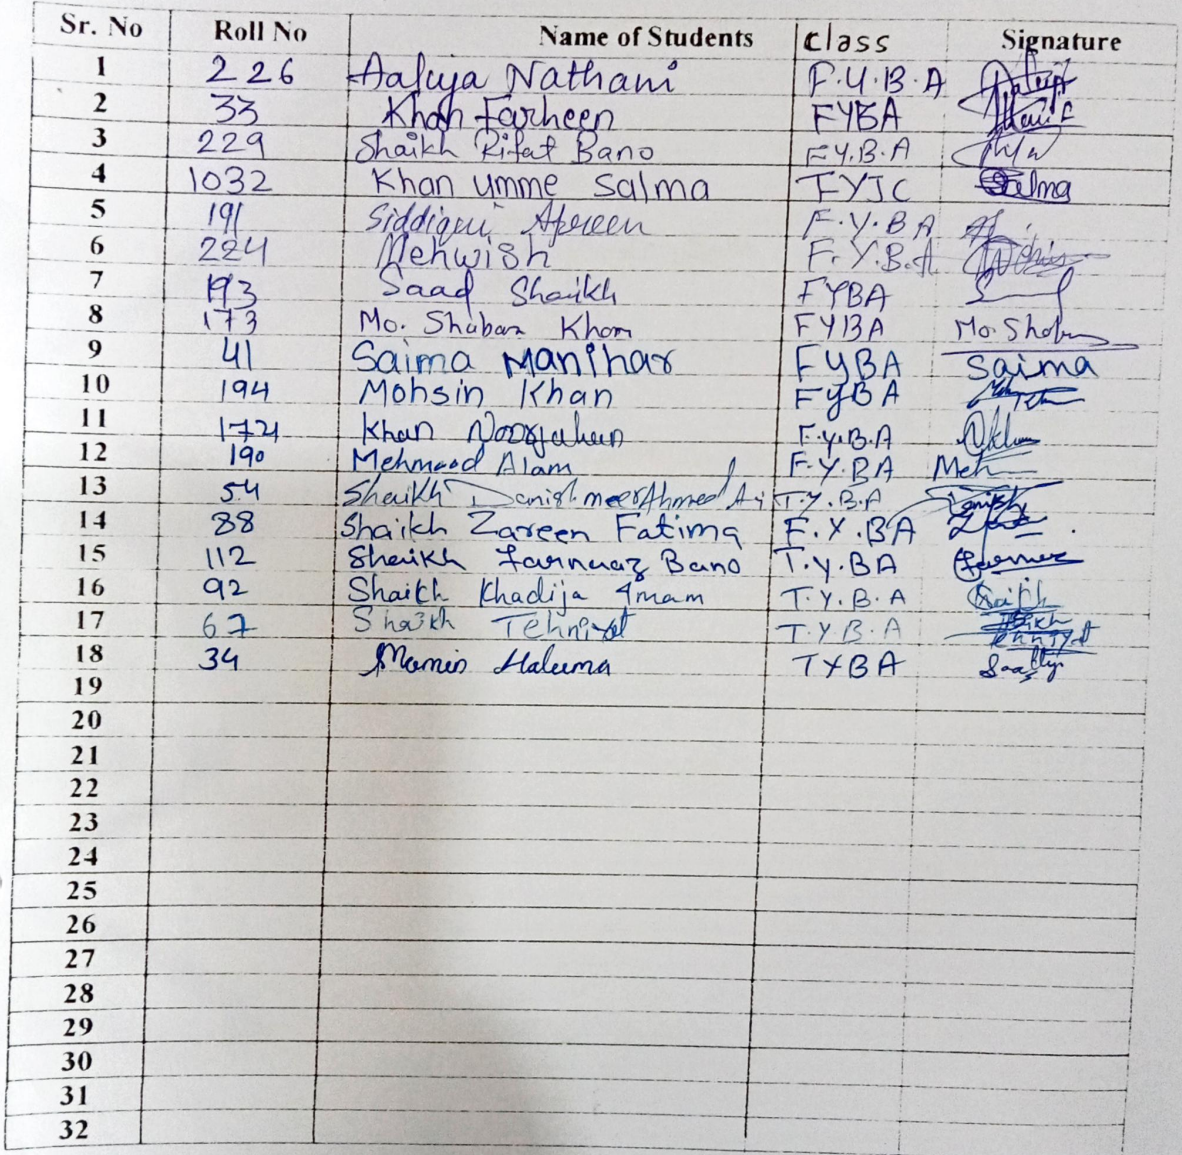 Sr. No Roll No Name of Students Class Signature
1 226 Aafiya Nathani F.Y.B.A
2 33 Khan Farheen FYBA
3 229 Shaikh Rifat Bano F.Y.B.A
4 1032 Khan Umme Salma FYJC Salma
5 191 Siddiqui Afreen F.Y.BA
6 224 Mehwish F.Y.B.A
7 193 Saad Shaikh FYBA
8 173 Mo. Shaban Khan FYBA Mo. Shaban
9 41 Saima Manihar FYBA Saima
10 194 Mohsin Khan FYBA
11 Khan Noorjahan F.Y.B.A
12 190 Mehmood Alam F.Y.BA Meh
13 54 Shaikh Danish T.Y.B.A Danish
14 88 Shaikh Zareen Fatima F.Y.BA
15 112 Shaikh Farnaaz Bano T.Y.BA
16 92 Shaikh Khadija Imam T.Y.B.A
17 67 Shaikh Tehniyat T.Y.B.A
18 34 Momin Haluma TYBA
19
20
21
22
23
24
25
26
27
28
29
30
31
32